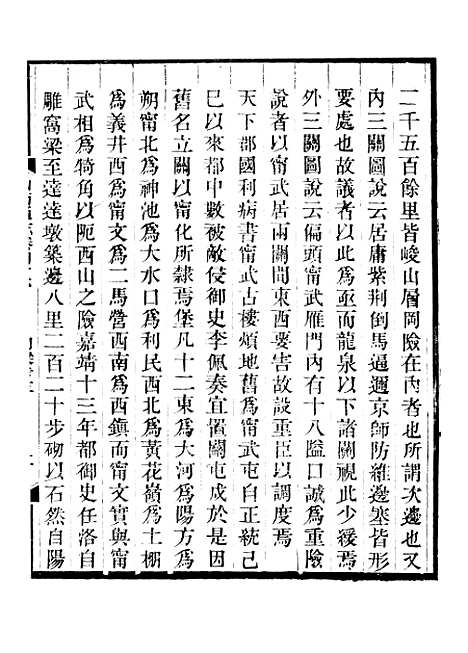 二千五百餘里皆峻山層岡險在內者也所謂次邊也又
內三關圖說云居庸紫荆倒馬逼邇京師防維邊塞皆形
要處也故議者以此為亟而龍泉以下諸關視此少緩焉
外三關圖說云偏頭甯武雁門內有十八隘口誠為重險
說者以甯武居兩關間東西要害故設重臣以調度焉
天下郡國利病書甯武古樓煩地舊為甯武屯自正統己
巳以來都中數被敵侵御史李佩奏宜置關屯戍於是因
舊名立關以甯化所隸焉堡凡十二東為大河為陽方為
朔甯北為神池為大水口為利民西北為黃花嶺為土棚
為義井西為甯文為二馬營西南為西鎮而甯文實與甯
武相為犄角以阨西山之險嘉靖十三年都御史任洛自
雕窩梁至達達墩築邊八里二百二十步砌以石然自陽